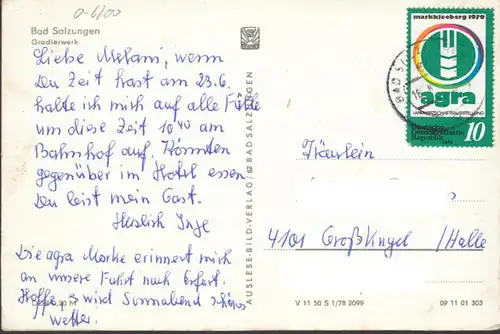 0-6200
Bad Salzungen
Gradierwerk
Liebe Melani, wenn
Du Zeit hast am 23.6.
halte ich mich auf alle Fälle
um diese Zeit 10 40 am
Bahnhof auf. Könnten
gegenüber im Hotel essen.
Du bist mein Gast.
Herzlich Inge
Die agra Marke erinnert mich
an unsere Fahrt nach Erfurt.
Hoffe, es wird Sonnabend schönes
Wetter.
AUSLESE-BILD-VERLAG / 62 BAD SALZUNGEN
markkleeberg 1979
agra
LANDWIRTSCHAFTSAUSSTELLUNG
Deutsche
Demokratische
Republik
10
BAD
Fräulein
4101 Großkugel / Halle
V 11 50 S 1/78 2099
09 11 01 303